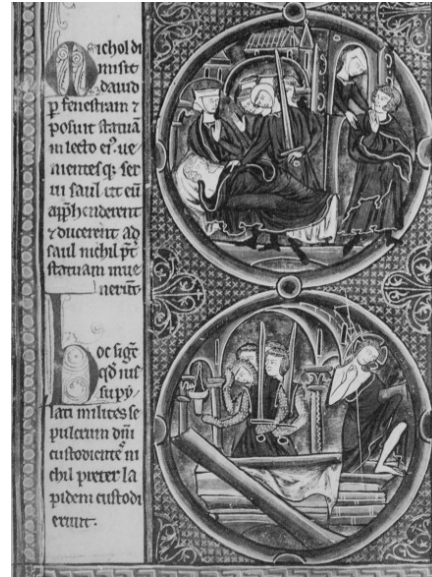 Michol di
misit
dauid
p fenestram ⁊
posuit statuā
in lecto eiꝰ. ue
nientes qꝫ ser
ui saul ut eū
app̄henderent
⁊ ducerent ad
saul nichil p̄t
statuam inue
nerūt.
Hoc sigᷓt
qd̄ ius
su py
lati milites se
pulcrum dn̄i
custodientes ni
chil preter la
pidem custodi
erunt.